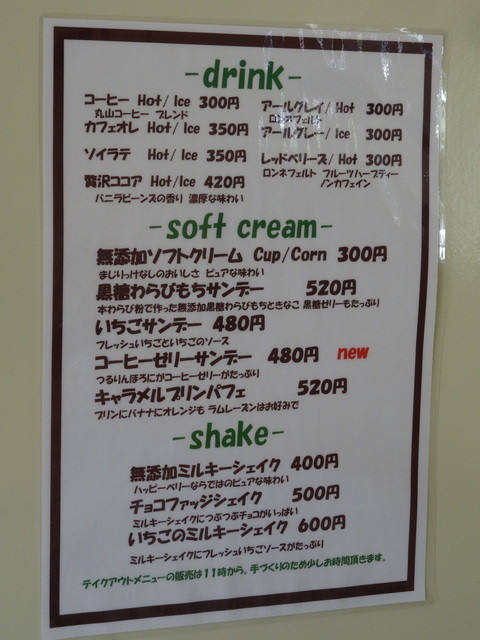 -drink-
コーヒー Hot/Ice 300円
丸山コーヒー ブレンド
カフェオレ Hot/Ice 350円
ソイラテ Hot/Ice 350円
贅沢ココア Hot/Ice 420円
バニラビーンズの香り 濃厚な味わい
アールグレイ/Hot 300円
ロンネフェルト
アールグレー/Ice 300円
レッドベリーズ/Hot 300円
ロンネフェルト フルーツハーブティー
ノンカフェイン
-soft cream-
無添加ソフトクリーム Cup/Corn 300円
まじりっけなしのおいしさ ピュアな味わい
黒糖わらびもちサンデー 520円
本わらび粉で作った無添加黒糖わらびもちときなこ 黒糖ゼリーもたっぷり
いちごサンデー 480円
フレッシュいちごといちごのソース
コーヒーゼリーサンデー 480円 new
つるりんほろにがコーヒーゼリーがたっぷり
キャラメルプリンパフェ 520円
プリンにバナナにオレンジも ラムレーズンはお好みで
-shake-
無添加ミルキーシェイク 400円
ハッピーベリーならではのピュアな味わい
チョコファッジシェイク 500円
ミルキーシェイクにつぶつぶチョコがいっぱい
いちごのミルキーシェイク 600円
ミルキーシェイクにフレッシュいちごソースがたっぷり
テイクアウトメニューの販売は11時から、手づくりのため少しお時間頂きます。